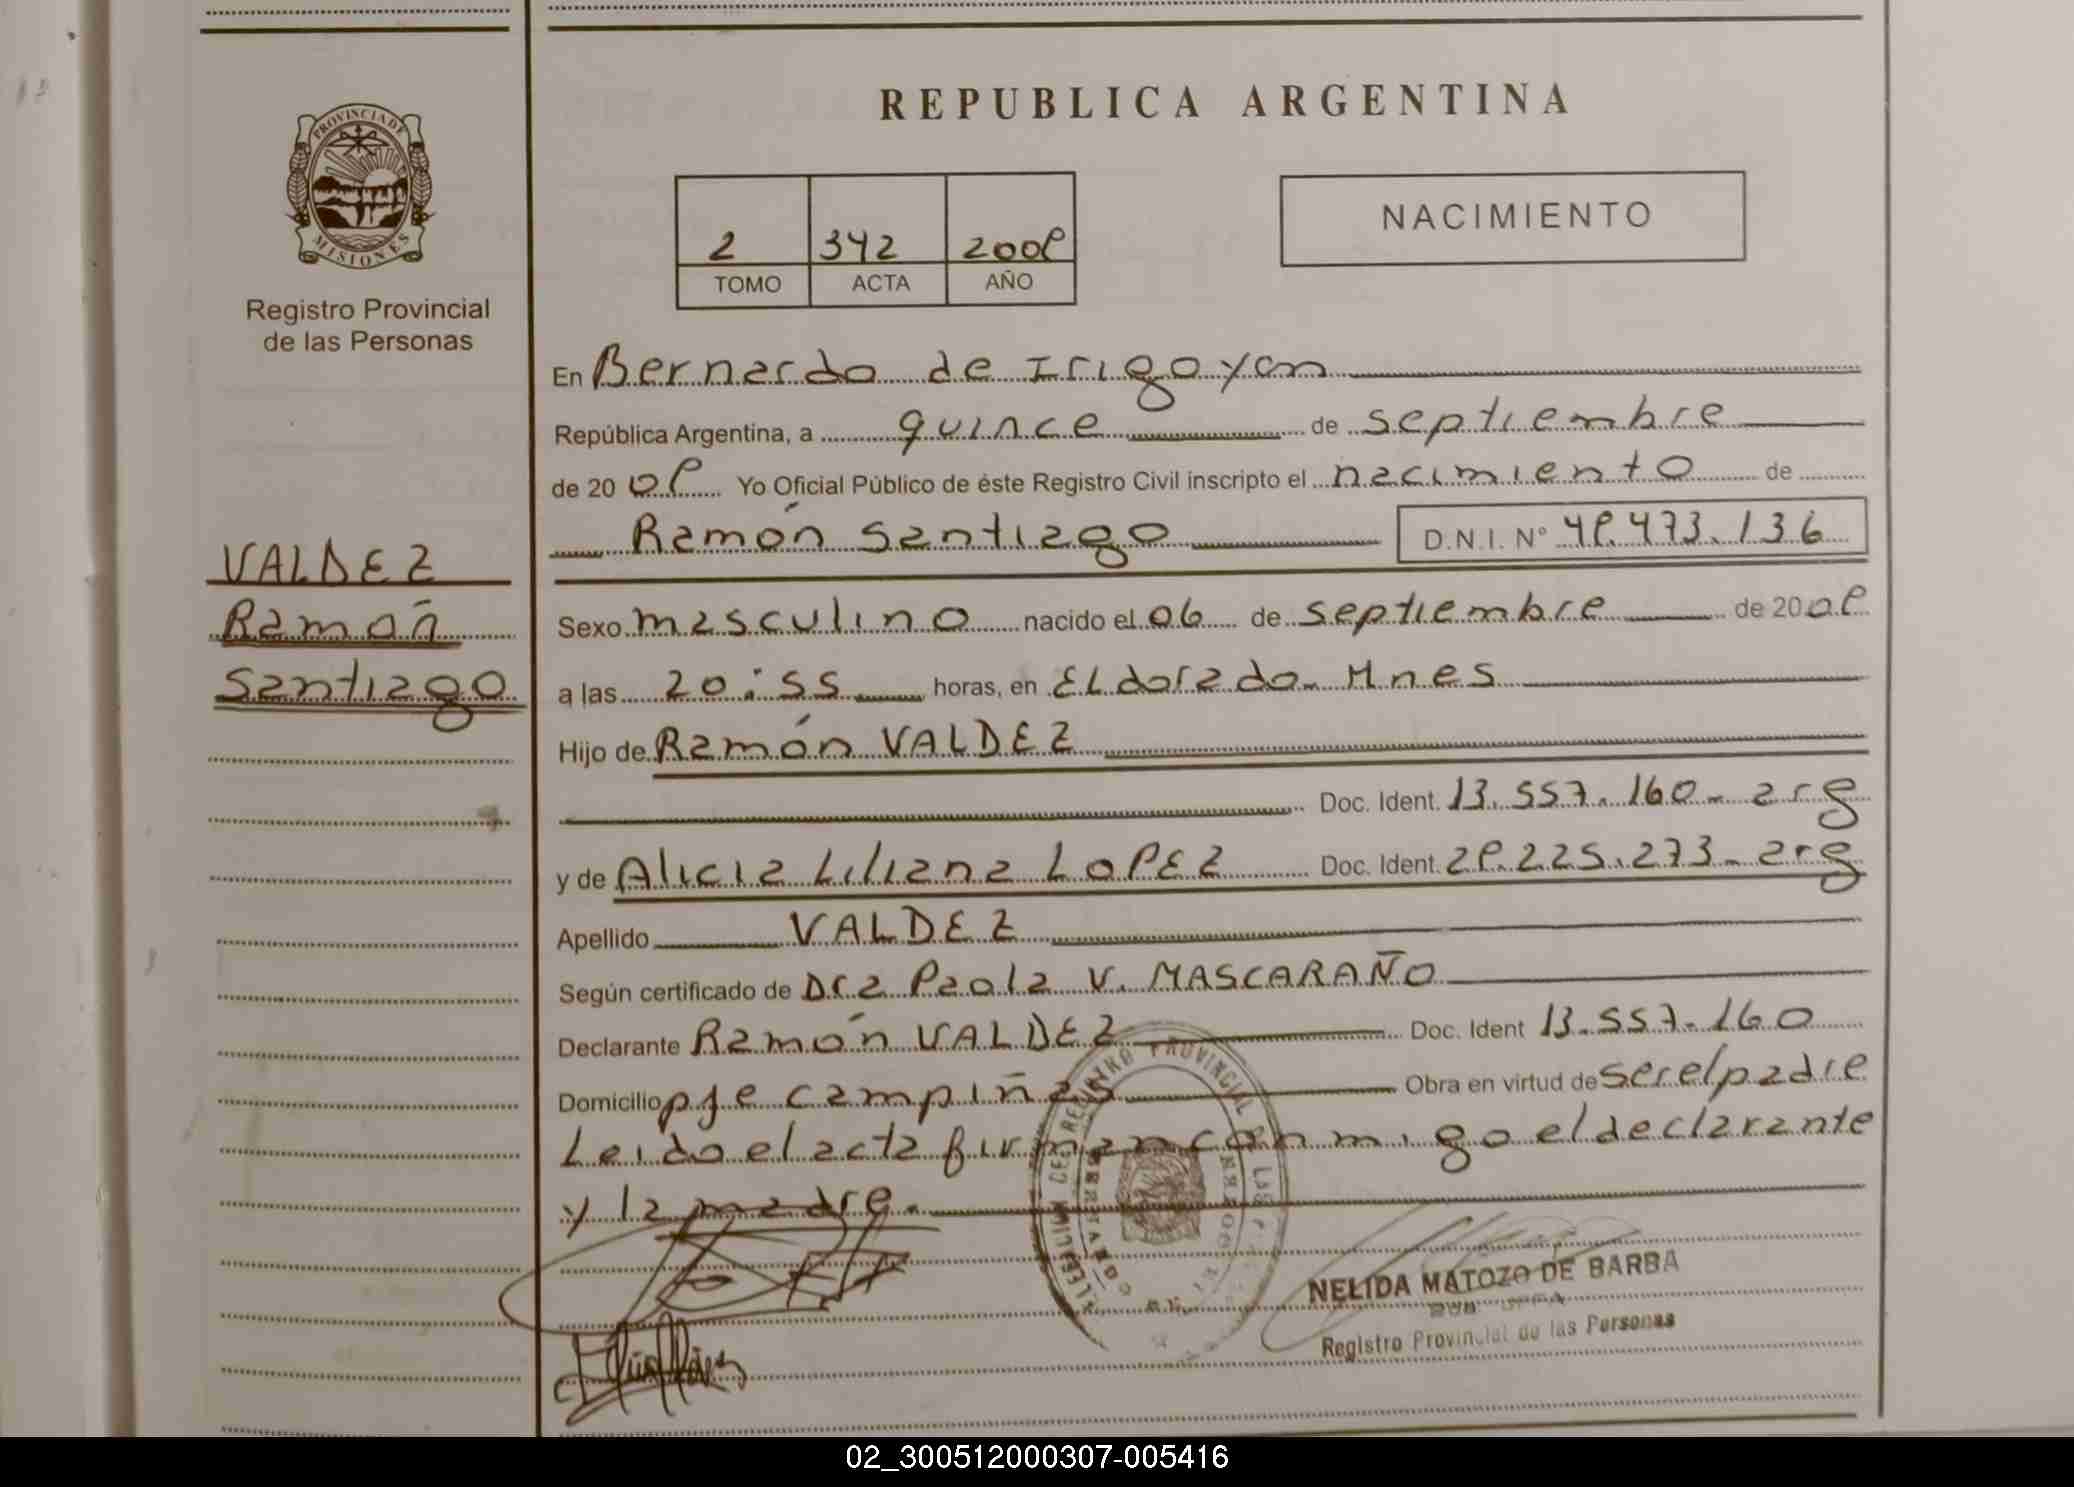 PROVINCIA DE
MISIONES
Registro Provincial
de las Personas
VALDEZ
Ramón
Santiago
REPUBLICA ARGENTINA
2 342 2008
TOMO ACTA AÑO
NACIMIENTO
En Bernardo de Irigoyen
República Argentina, a quince de septiembre
de 20 08 Yo Oficial Público de éste Registro Civil inscripto el nacimiento de
Ramón Santiago D.N.I. N° 48.473.136
Sexo masculino nacido el 06 de septiembre de 20 08
a las 20:55 horas, en ELdorado. Mnes
Hijo de Ramón VALDEZ
Doc. Ident. 13.557.160- arg
y de Alicia Liliana LOPEZ Doc. Ident. 28.225.273- arg
Apellido VALDEZ
Según certificado de Dra Paola V. MASCARAÑO
Declarante Ramón VALDEZ Doc. Ident 13.557.160
Domicilio pje campiñas Obra en virtud de ser el padre
Leido el acta firman conmigo el declarante
y la madre.
REGISTRO PROVINCIAL
NELIDA MATOZO DE BARBA
Registro Provincial de las Personas
02_300512000307-005416